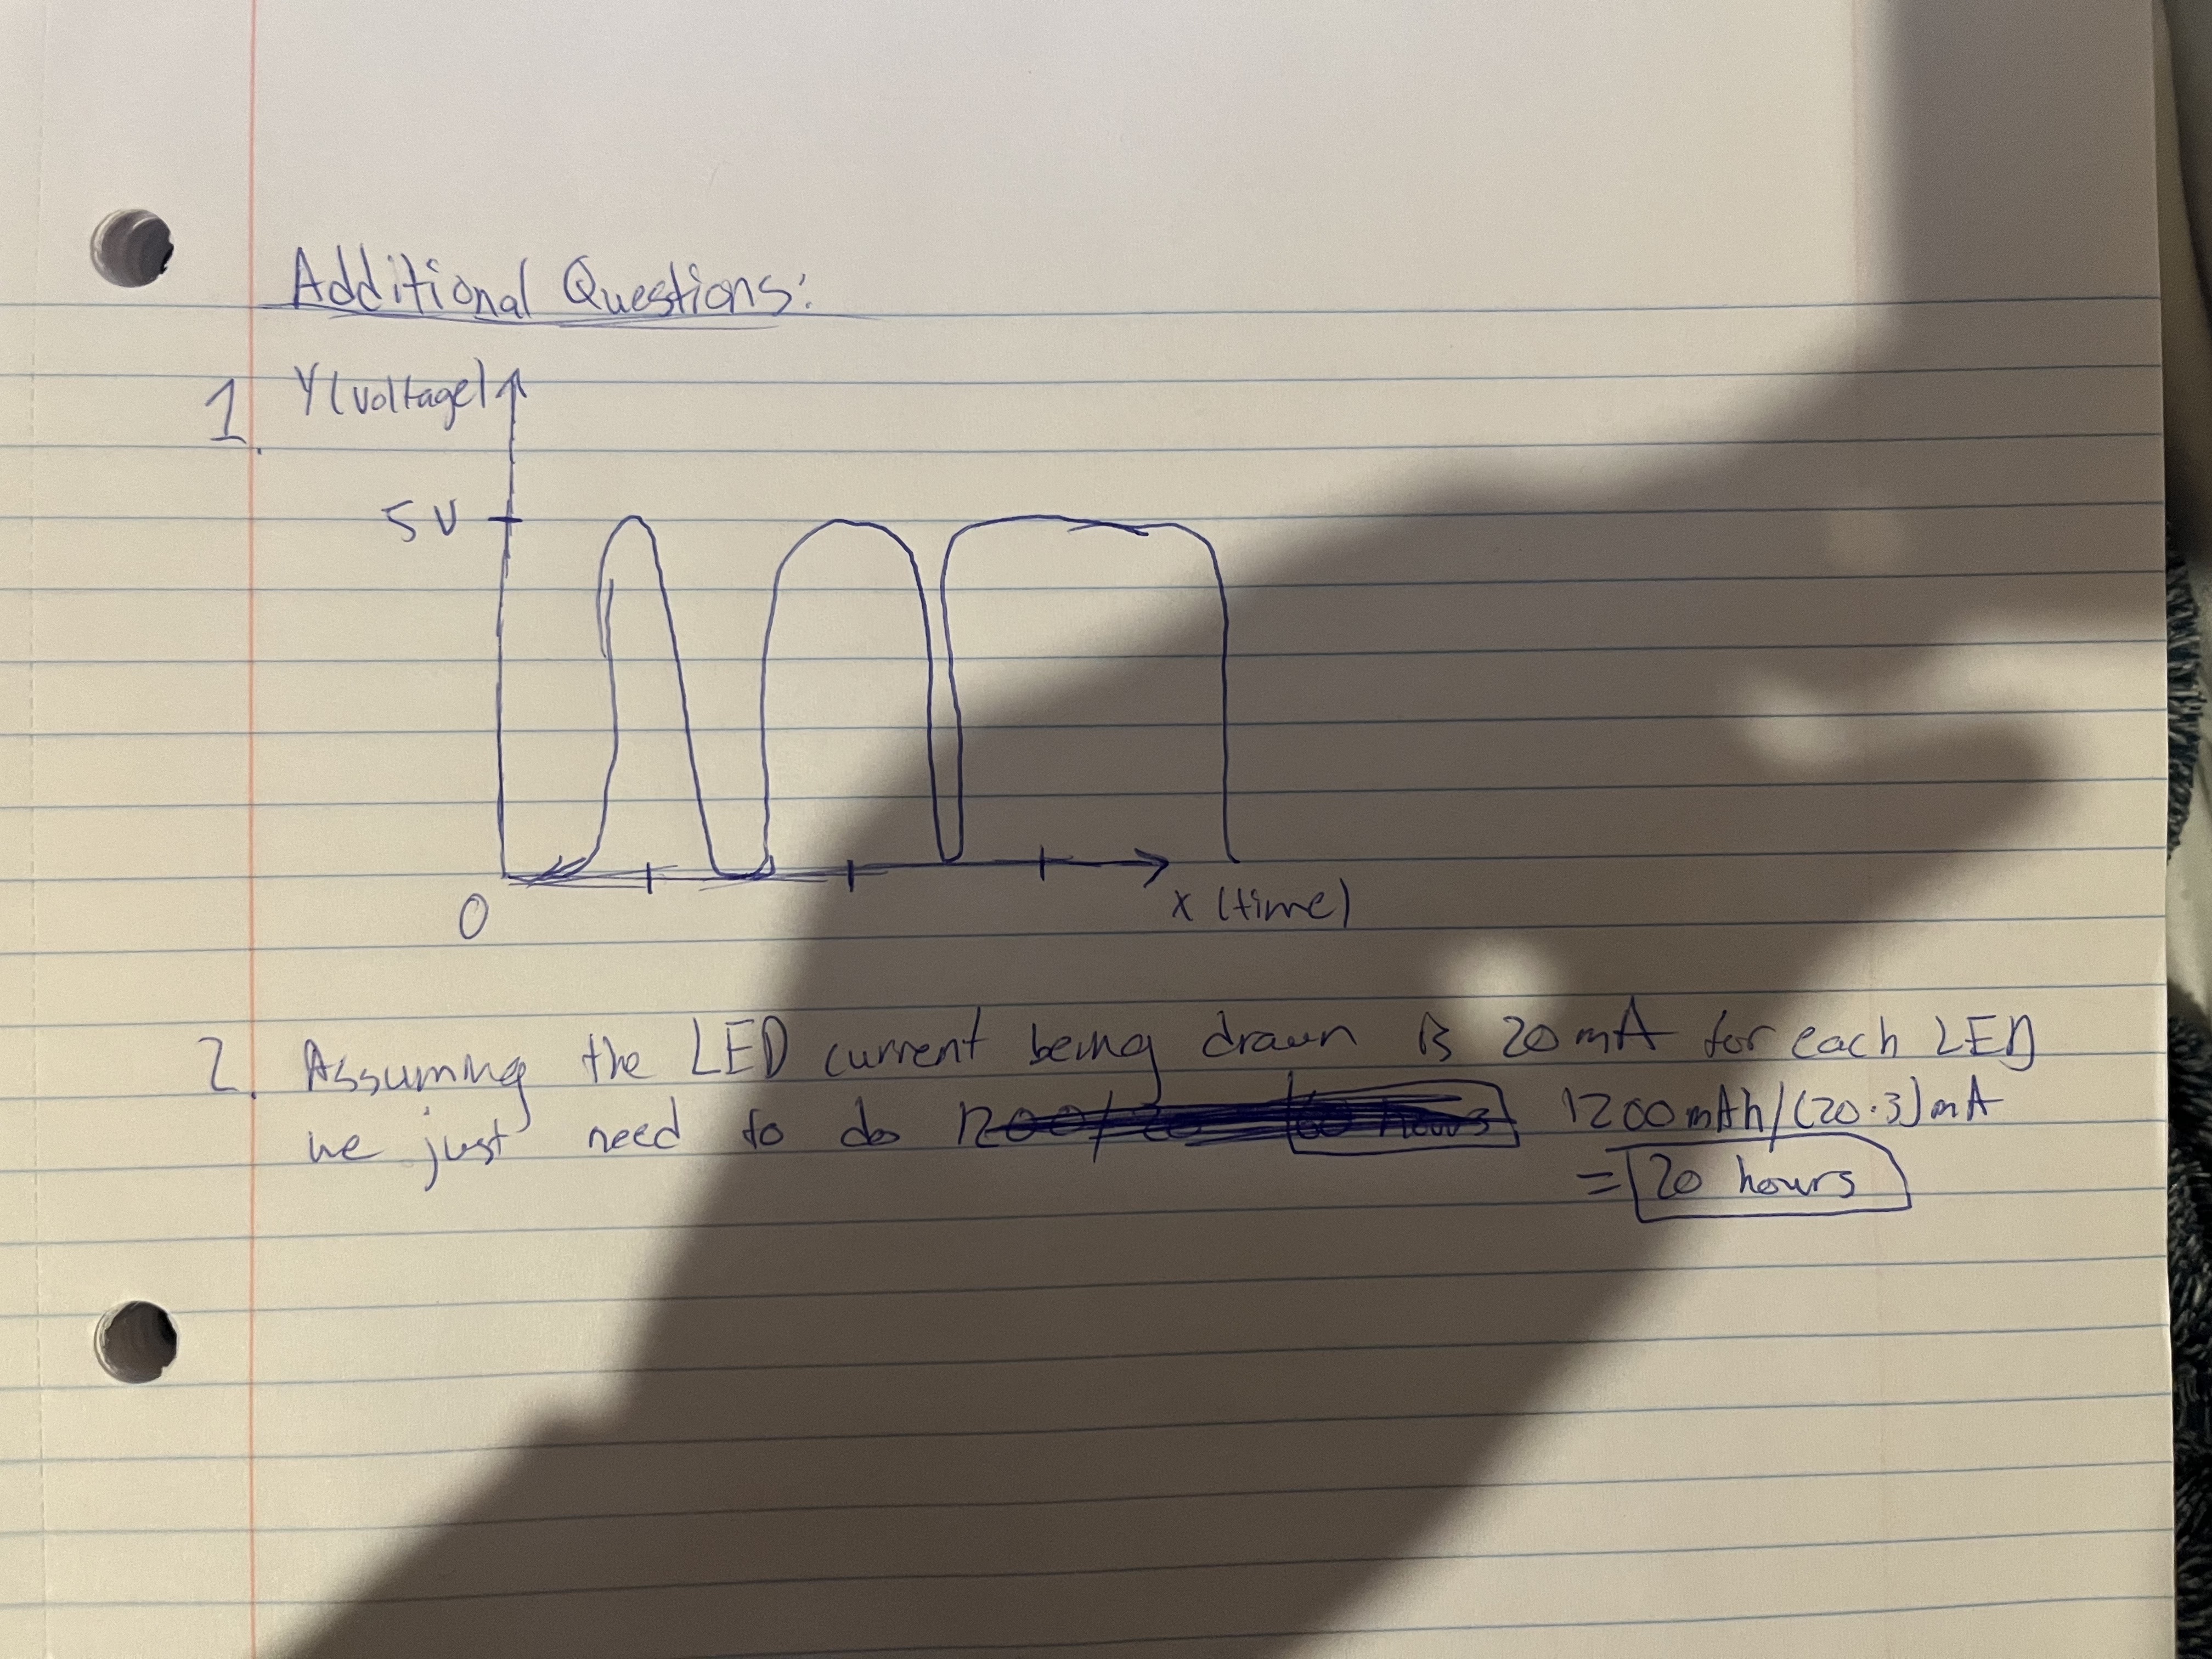 Additional Questions:
1. Y(voltage)
5V
0
x (time)
2. Assuming the LED current being drawn is 20mA for each LED
we just need to do 1200mAh/(20·3)mA
= 20 hours